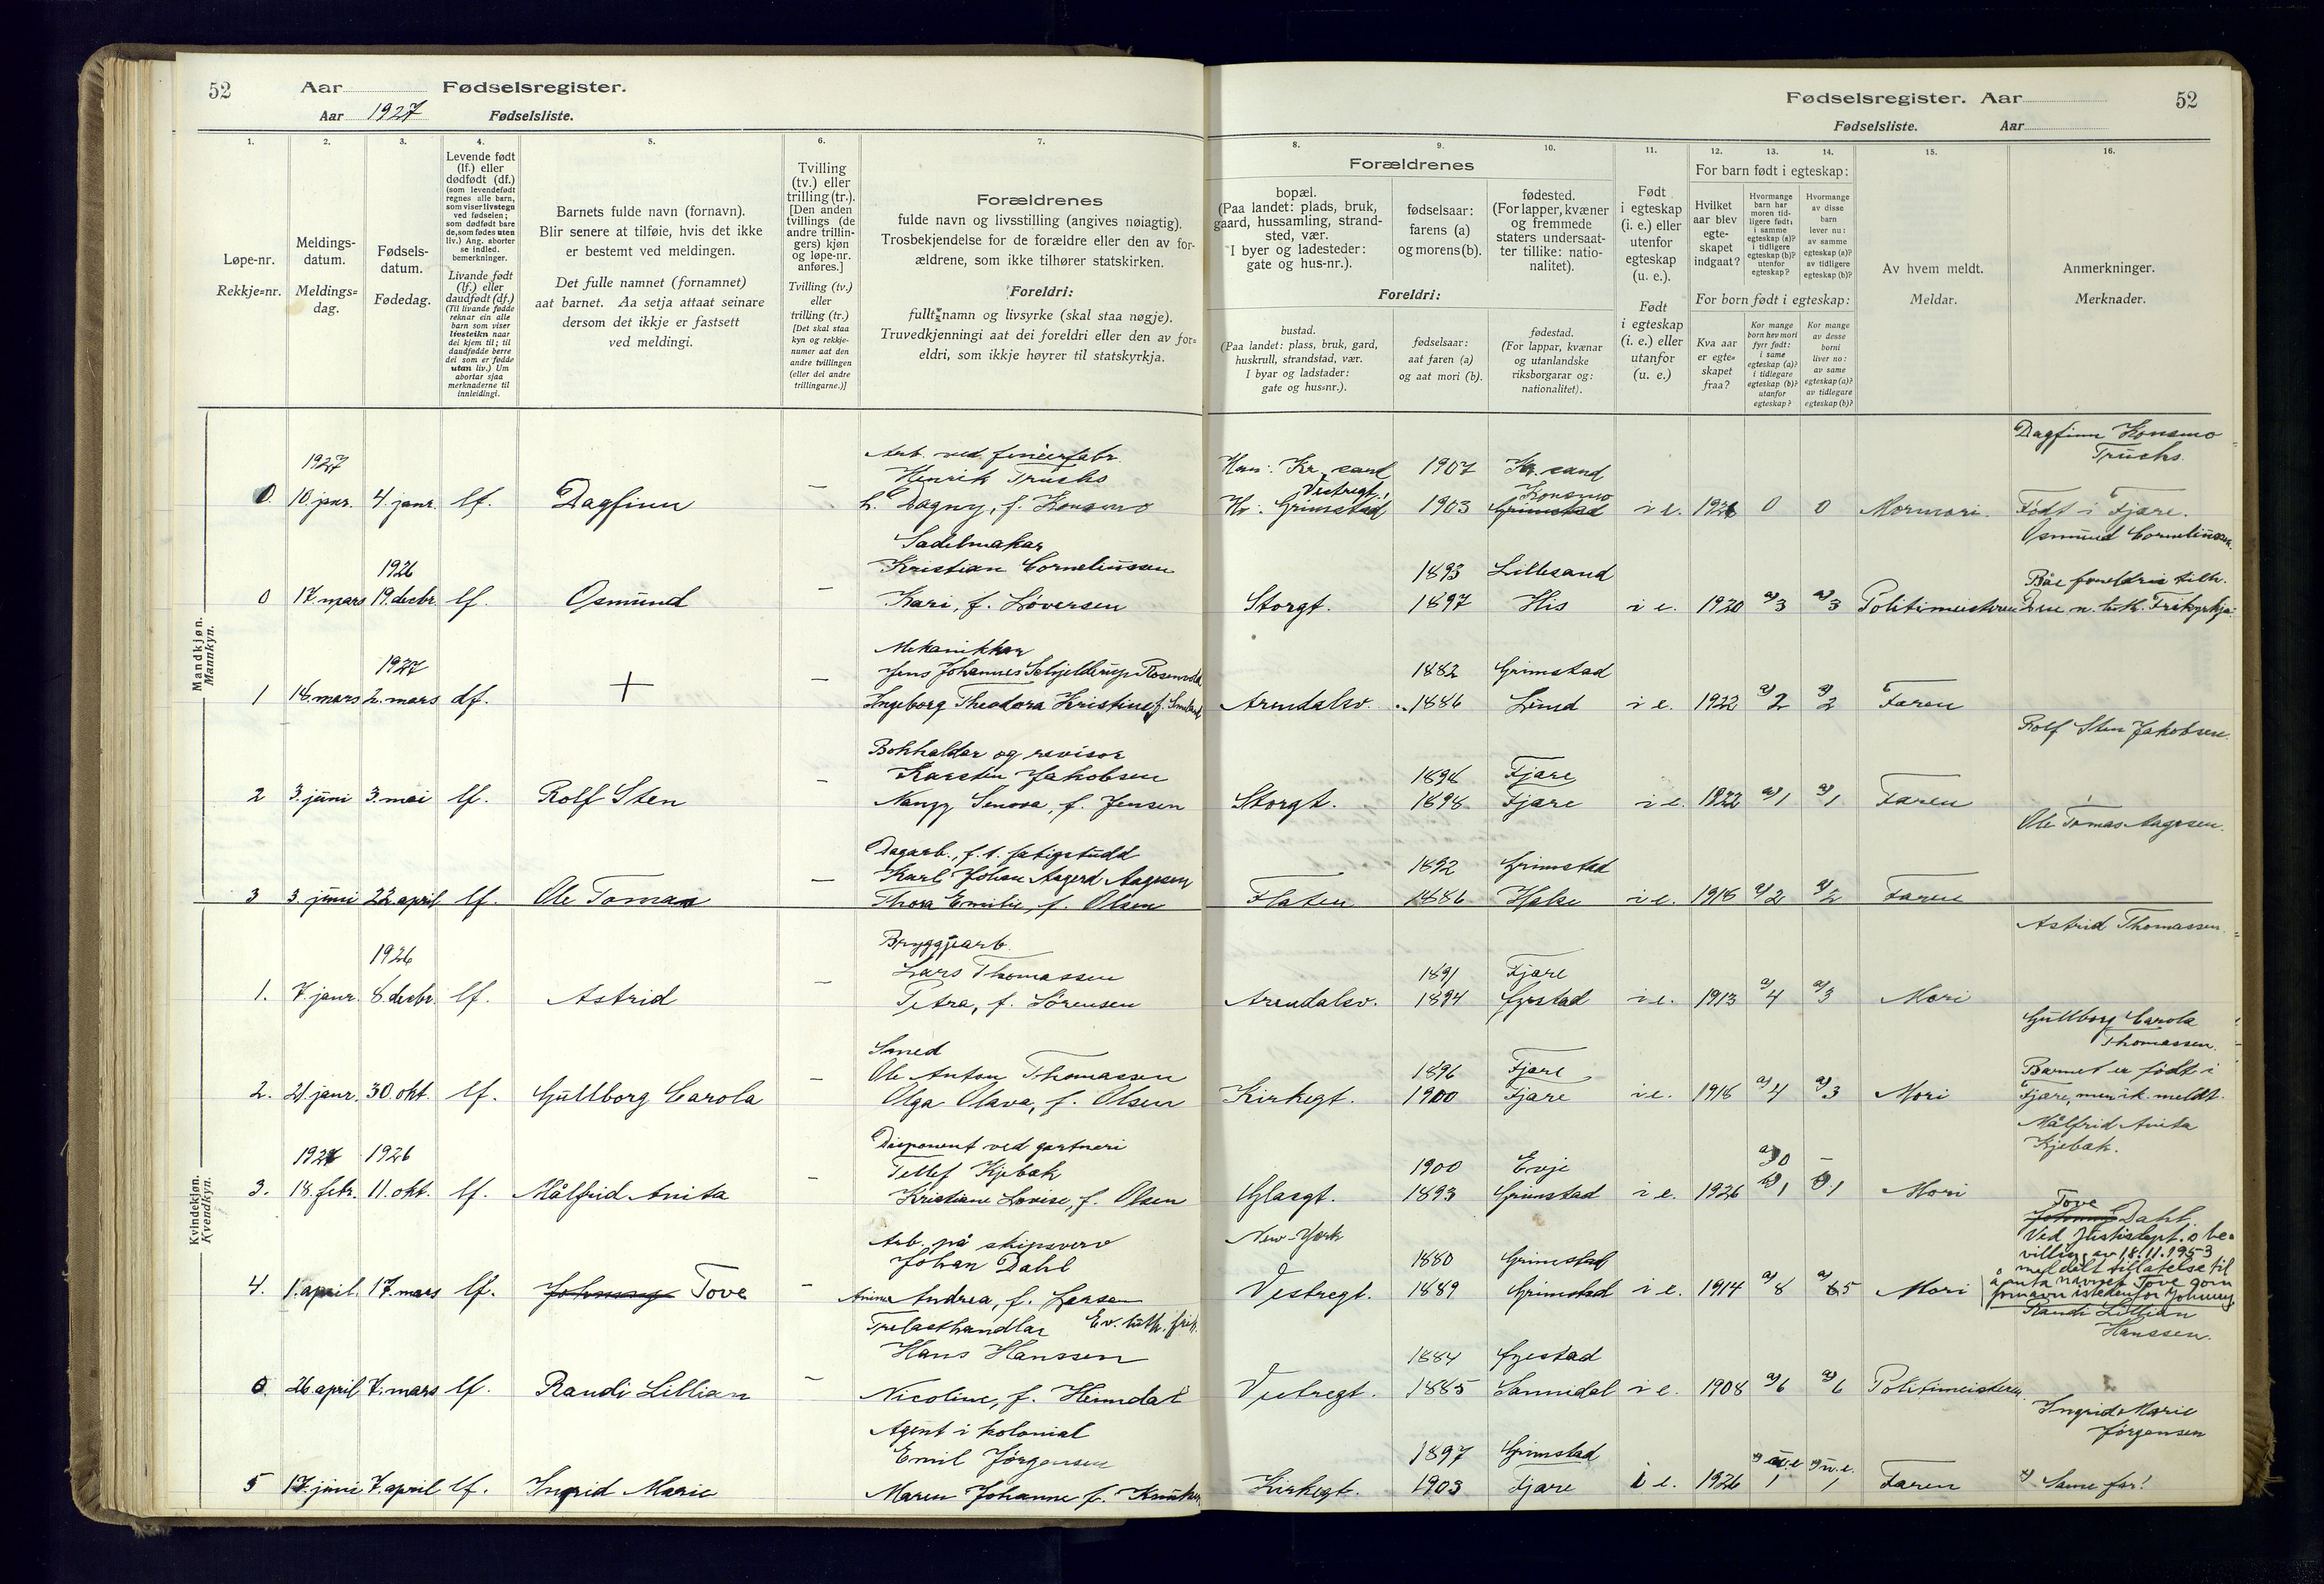 52
Aar
Fødselsregister.
Aar 1927
Fødselsliste.
Fødselsregister. Aar
52
Fødselsliste. Aar
1.
Løpe-nr.
Rekkje=nr.
2.
Meldings-
datum.
Meldings=
dag.
3.
Fødsels-
datum.
Fødedag.
4.
Levende født
(lf.) eller
dødfødt (df.)
(som levendefødt
regnes alle barn,
som viser livstegn
ved fødselen;
som dødfødt bare
de, som fødes uten
liv.) Ang. aborter
se indled.
bemerkninger.
Livande født
(lf.) eller
daudfødt (df.)
(Til livande fødde
reknar ein alle
barn som viser
livsteikn naar
dei kjem til; til
daudfødde berre
dei som er fødde
utan liv.) Um
abortar sjaa
merknaderne til
innleidingi.
5.
Barnets fulde navn (fornavn).
Blir senere at tilføie, hvis det ikke
er bestemt ved meldingen.
Det fulle namnet (fornamnet)
aat barnet. Aa setja attaat seinare
dersom det ikkje er fastsett
ved meldingi.
6.
Tvilling
(tv.) eller
trilling (tr.).
[Den anden
tvillings (de
andre trillin-
gers) kjøn
og løpe-nr.
anføres.]
Tvilling (tv.)
eller
trilling (tr.)
[Det skal staa
kyn og rekkje-
numer aat den
andre tvillingen
(eller dei andre
trillingarne.)]
7.
Forældrenes
fulde navn og livsstilling (angives nøiagtig).
Trosbekjendelse for de forældre eller den av for-
ældrene, som ikke tilhører statskirken.
Foreldri:
fullt namn og livsyrke (skal staa nøgje).
Truvedkjenningi aat dei foreldri eller den av for=
eldri, som ikkje høyrer til statskyrkja.
8.
Forældrenes
bopæl.
(Paa landet: plads, bruk,
gaard, hussamling, strand-
sted, vær.
I byer og ladesteder:
gate og hus-nr.).
Foreldri:
bustad.
(Paa landet: plass, bruk, gard,
huskrull, strandstad, vær.
I byar og ladstader:
gate og hus=nr.).
9.
fødselsaar:
farens (a)
og morens (b).
fødselsaar:
aat faren (a)
og aat mori (b).
10.
fødested.
(For lapper, kvæner
og fremmede
staters undersaat-
ter tillike: natio-
nalitet).
fødestad.
(For lappar, kvænar
og utanlandske
riksborgarar og:
nationalitet).
11.
Født
i egteskap
(i. e.) eller
utenfor
egteskap
(u. e.).
Født
i egteskap
(i. e.) eller
utanfor
(u. e.)
12.
For barn født i egteskap:
Hvilket
aar blev
egte-
skapet
indgaat?
For born født i egteskap:
Kva aar
er egte=
skapet
fraa?
13.
Hvormange
barn har
moren tid-
ligere født:
i samme
egteskap (a)?
i tidligere
egteskap (b)?
utenfor
egteskap?
Kor mange
born hev mori
fyrr født:
i same
egteskap (a)?
i tidlegare
egteskap (b)?
utanfor
egteskap?
14.
Hvormange
av disse
barn
lever nu:
av samme
egteskap (a)?
av tidligere
egteskap (b)?
Kor mange
av desse
borni
liver no:
av same
egteskap (a)?
av tidlegare
egteskap (b)?
15.
Av hvem meldt.
Meldar.
16.
Anmerkninger.
Merknader.
Mandkjøn.
Mannkyn.
1927
0. 10. janr. 4. janr. lf. Dagfinn –
Arb. ved finérfabr.
Henrik Truchs
h. Dagny, f. Konsmo
Han: Kr.sand 1907 Kr.sand
Vestregt., Konsmo
Ho: Grimstad 1903 Grimstad i e. 1926 0 0 Mormori.
Dagfinn Konsmo
Truchs.
Født i Fjære.
1926
0 17. mars 19. decbr. lf. Osmund –
Sadelmakar
Kristian Corneliussen
Kari, f. Løversen
1893 Lillesand
Storgt. 1897 His i e. 1920 a)3 a)3 Politimeisteren
Osmund Corneliussen.
Båe foreldri tilh.
Den n. luth. Frikyrkja.
1927
1 18. mars 2. mars df. + –
Mekanikkar
Jens Johannes Schjelderup Rosenvold
Ingeborg Theodora Kristine, f.
1882 Grimstad
Arendalsv. 1886 Lund i e. 1922 a)2 a)2 Faren
2 3. juni 3. mai lf. Rolf Sten –
Bokhaldar og revisor
Karsten Jakobsen
Nanny Senora, f. Jensen
1898 Fjære
Storgt. 1898 Fjære i e. 1922 a)1 a)1 Faren
Rolf Sten Jakobsen.
3 3. juni 22. april lf. Ole Tomas –
Dagarb., f.t. fatigstudd
Karl Johan Aagerd Aagesen
Thora Emilie, f. Olsen
1892 Grimstad
Flaten 1886 Halse i e. 1918 a)2 a)2 Faren
Ole Tomas Aagesen.
Kvindekjøn.
Kvendkyn.
1926
1. 7. janr. 8. decbr. lf. Astrid –
Bryggjearb.
Lars Thomassen
Petra, f. Sørensen
1891 Fjære
Arendalsv. 1894 Øyestad i e. 1913 a)4 a)3 Mori
Astrid Thomassen.
2. 21. janr. 30. okt. lf. Gullborg Carola –
Smed
Ole Anton Thomassen
Olga Olava, f. Olsen
1896 Fjære
Kirkegt. 1900 Fjære i e. 1918 a)4 a)3 Mori
Gullborg Carola
Thomassen.
Barnet er født i
Fjære, men ik. meldt.
1927 1926
3. 18. febr. 11. okt. lf. Målfrid Anita –
Disponent ved gartneri
Tellef Kjebak
Kristiane Lovise, f. Olsen
1900 Evje a)0 –
Glasgt. 1893 Grimstad i e. 1926 b)1 b)1 Mori
Målfrid Anita
Kjebak.
4. 1. april. 17. mars lf. Johnny Tove –
Arb. på skipsverv
Johan Dahl
Anine Andrea, f. Larsen
New-York 1880 Grimstad
Vestregt. 1889 Grimstad i e. 1914 a)8 a)5 Mori
Tove
Johnny Dahl
Ved Justisdept.s be-
villing av 18.11.1953
meddelt tillatelse til
å anta navnet Tove som
fornavn istedenfor Johnny
0. 26. april 7. mars lf. Randi Lillian –
Trelasthandlar Ev. luth. frik.
Hans Hanssen
Nicoline, f. Heimdal
1884 Øyestad
Vestregt. 1885 Sannidal i e. 1908 a)6 a)6 Politimeisteren
Randi Lillian
Hanssen.
5 17. juni 7. april lf. Ingrid Marie
Agent i kolonial
Emil Jørgensen
Maren Johanne f. Knutsen
1897 Grimstad
Kirkegt. 1903 Fjære i e. 1926 x) u.e. 1 x) u.e. 1 Faren
Ingrid Marie
Jørgensen
x) Same far!